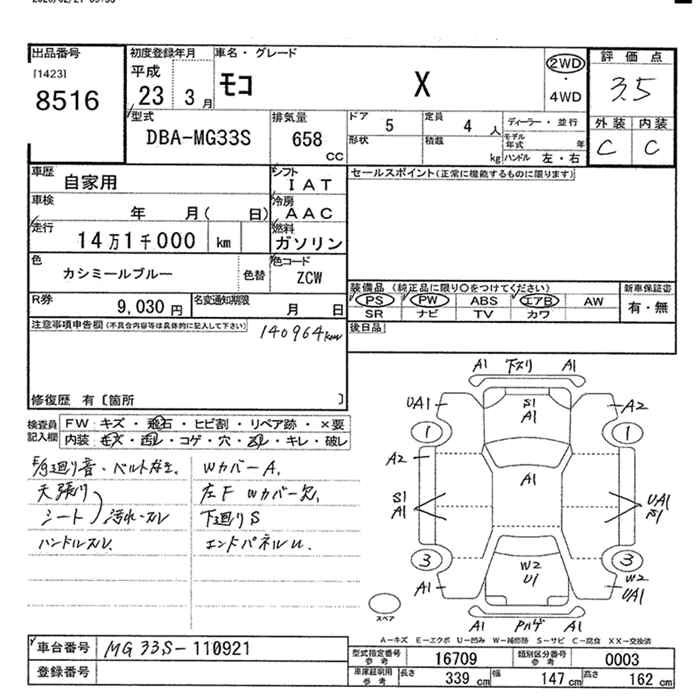 出品番号
[1423]
8516
初度登録年月
平成
23 3月
車名・グレード
モコ X
2WD
・
4WD
評価点
3.5
外装 内装
C C
型式
DBA-MG33S
排気量
658
CC
ドア 5
定員 4 人
ディーラー・並行
形状
積載 kg
モデル年式 年
ハンドル 左・右
車歴
自家用
シフト
IAT
車検
年 月( 日)
冷房
AAC
走行
14万1千000 km
燃料
ガソリン
色
カシミールブルー
色替
色コード
ZCW
R券
9,030円
名変通知期限
月 日
セールスポイント(正常に機能するものに限ります)
装備品 (純正品に限り〇をつけてください)
PS PW ABS エアB AW
SR ナビ TV カワ
新車保証書
有・無
後日品
注意事項申告欄(不具合内容等は具体的に記入して下さい)
140964km
修復歴 有〔箇所 〕
検査員
記入欄
FW: キズ・飛石・ヒビ割・リペア跡・×要
内装: キズ・汚レ・コゲ・穴・スレ・キレ・破レ
廻り音・ベルト
天張り
シート 汚れ・スレ
ハンドルスレ
WカバーA.
左F Wカバー欠.
下廻りS
エンドパネルU.
A1 下スリ A1
UA1 S1 A2
A1
1 1
A2 A1
S1 UA1
A1 S1
3 3
W2 W2
A1 U1 UA1
A1 A1
スペア
A-キズ E-エクボ U-凹み W-補修跡 S-サビ C-腐食 XX-交換済
車台番号 MG33S-110921
登録番号
型式指定番号 参考 16709
類別区分番号 参考 0003
車庫証明用 参考
長さ 339 cm 幅 147 cm 高さ 162 cm